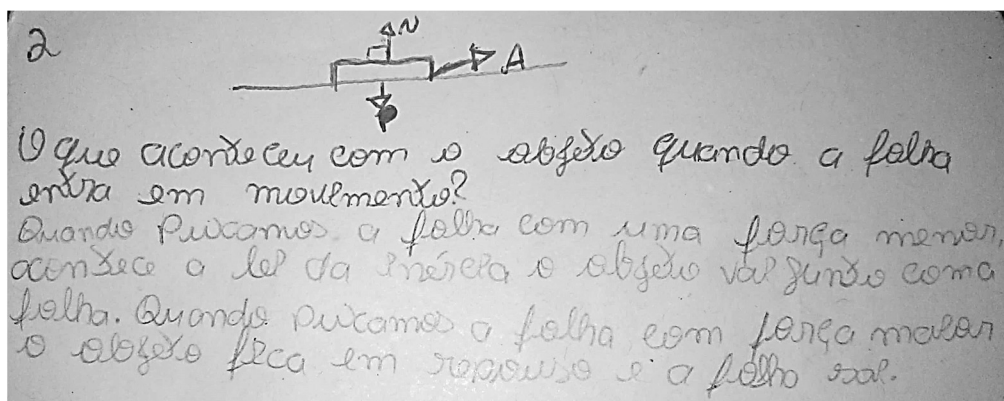 2
N
A
P
O que aconteceu com o objeto quando a folha
entra em movimento?
Quando Puxamos a folha com uma força menor,
acontece a lei da inércia o objeto vai junto com a
folha. Quando puxamos a folha com força maior
o objeto fica em repouso e a folha sai.